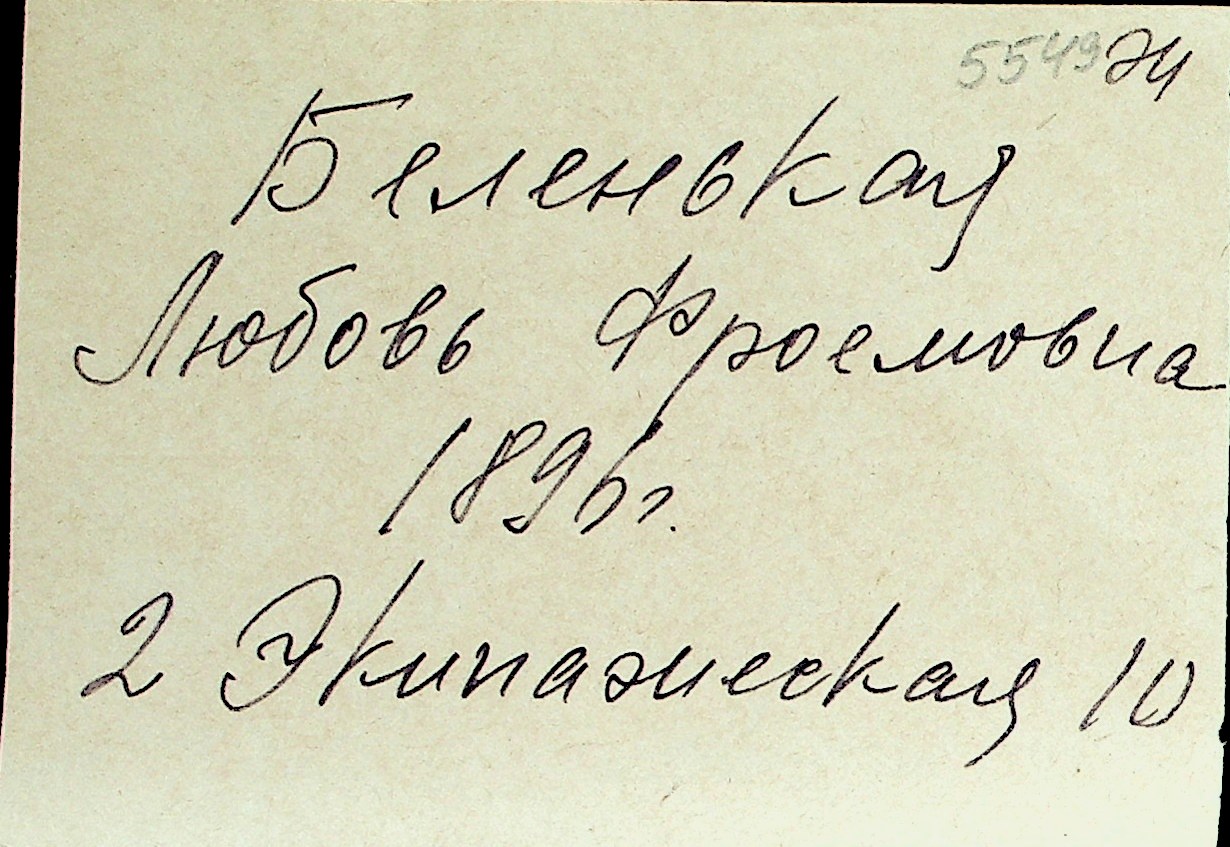 5549 ЭЧ
Беленькая
Любовь Фроемовна
1896 г.
2 Экипажеская 10